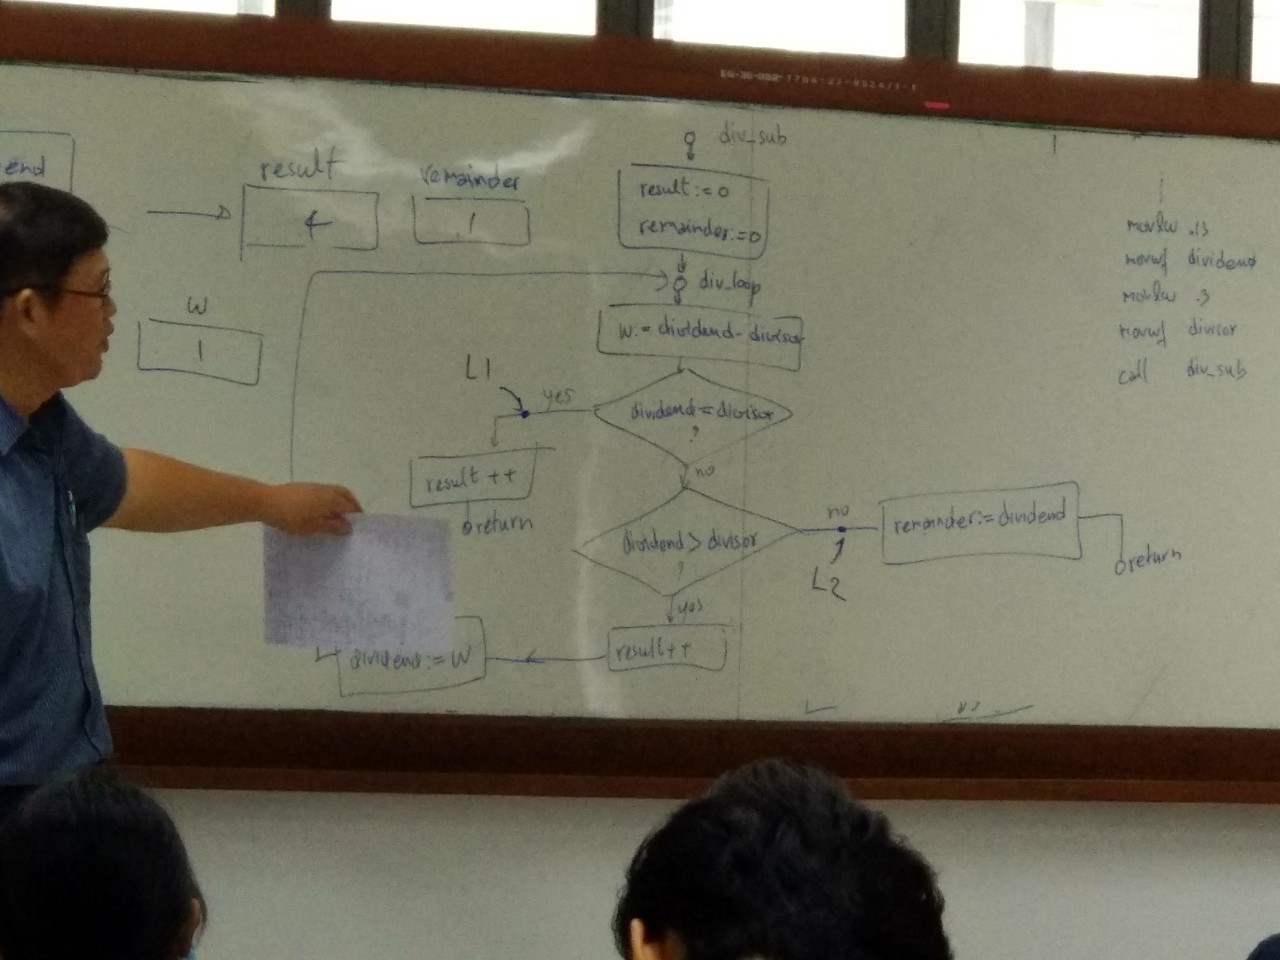 end
result
4
remainder
1
W
1
div_sub
result := 0
remainder := 0
div_loop
W := dividend - divisor
dividend = divisor
?
yes
L1
result ++
return
no
dividend > divisor
?
no
L2
remainder := dividend
return
yes
result ++
dividend := W
movlw .13
movwf dividend
movlw .3
movwf divisor
call div_sub